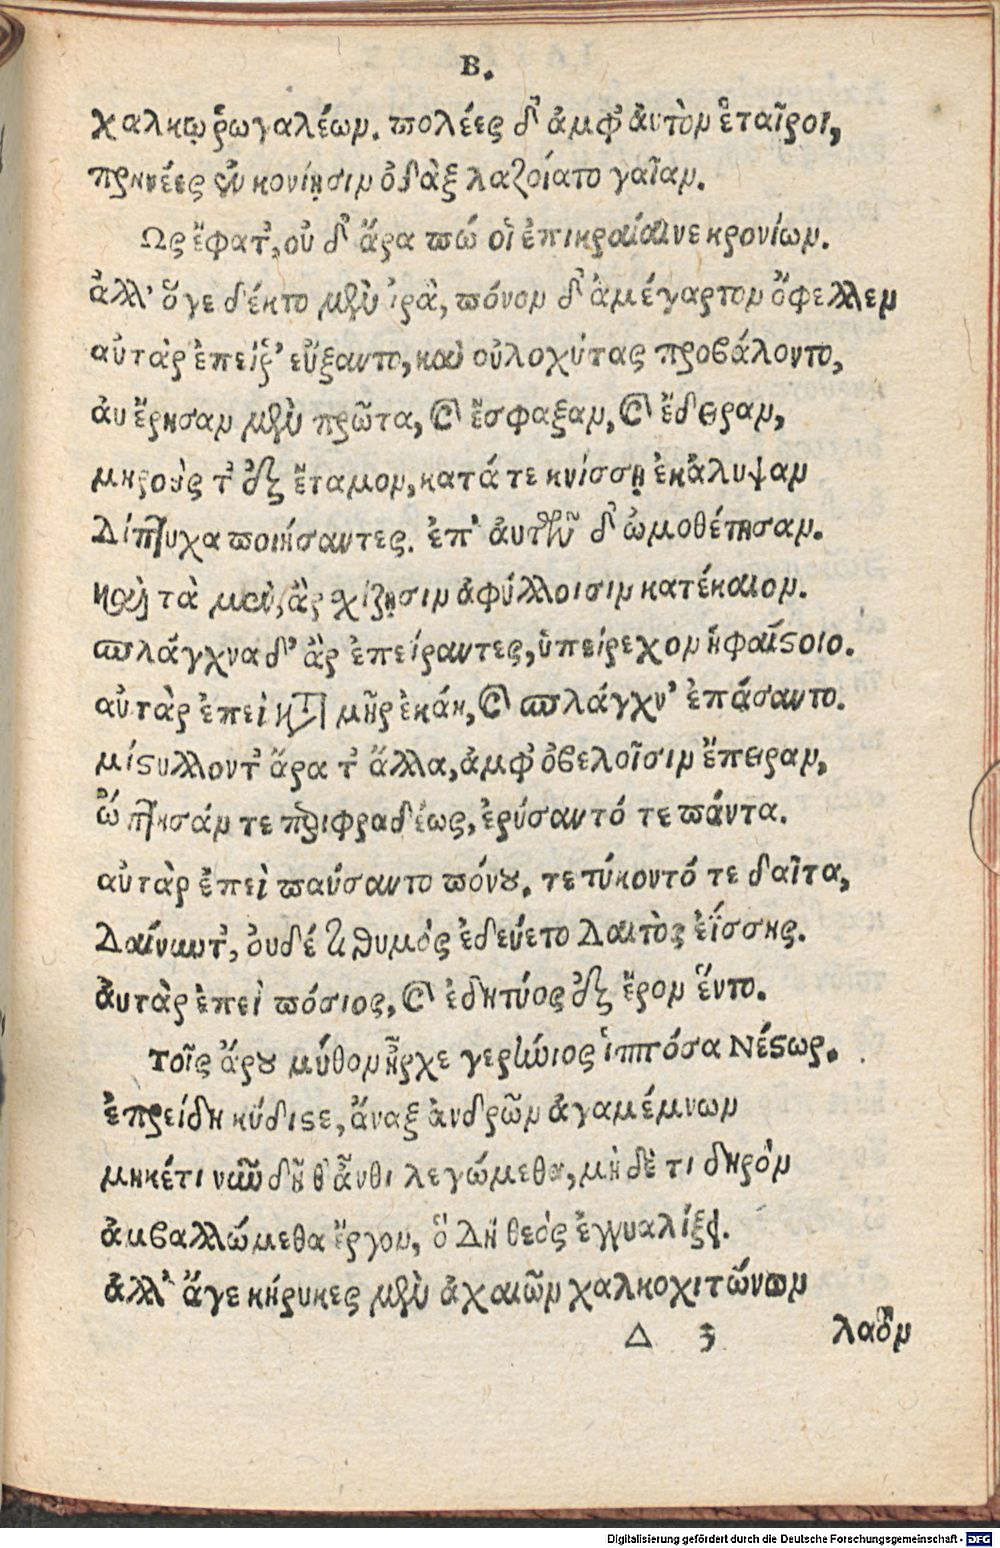 Β.
χαλκῷ ῥωγαλέον. πολέες δ' ἀμφ' ἀυτὸν ἑταῖροι,
πρηνέες ἐν κονίῃσιν ὀδὰξ λαζοίατο γαῖαν.
Ὣς ἔφατ', οὐ δ' ἄρα πώ οἱ ἐπικραίαινε κρονίων.
ἀλλ' ὅγε δέκτο μὲν ἱρὰ, πόνον δ' ἀμέγαρτον ὄφελλεν
αὐτὰρ ἐπεί ῥ' εὔξαντο, καὶ οὐλοχύτας προβάλοντο,
ἀυ ἔρησαν μὲν πρῶτα, καὶ ἔσφαξαν, καὶ ἔδειραν,
μηρούς τ' ἐξ ἔταμον, κατά τε κνίσσῃ ἐκάλυψαν
Δίπτυχα ποιήσαντες. ἐπ' ἀυτῶν δ' ὠμοθέτησαν.
καὶ τὰ μὲν ἂρ σχίζῃσιν ἀφύλλοισιν κατέκαιον.
σπλάγχνα δ' ἂρ ἐπείραντες, ὑπείρεχον ἡφαίστοιο.
αὐτὰρ ἐπεὶ κατὰ μῆρ ἐκάη, καὶ σπλάγχν' ἐπάσαντο.
μίστυλλόντ' ἄρα τ' ἄλλα, ἀμφ' ὀβελοῖσιν ἔπειραν,
ὤπτησάν τε περιφραδέως, ἐρύσαντό τε πάντα.
αὐτὰρ ἐπεὶ παύσαντο πόνου. τε τύκοντό τε δαῖτα,
Δαίνυντ', ὀυδέ τι θυμὸς ἐδεύετο Δαιτὸς ἐΐσσης.
ἀυτὰρ ἐπεὶ πόσιος, καὶ ἐδητύος ἐξ ἔρον ἕντο.
Τοῖς ἄρου μύθον ἦρχε γερήνιος ἱππότσα Νέστωρ.
ἀτρείδη κύδιστε, ἄναξ ἀνδρῶν ἀγαμέμνων
μηκέτι νῦν δῆθ' ἆυθι λεγώμεθα, μὴ δὲ τι δηρὸν
ἀμβαλλώμεθα ἔργον, ὃ Δὴ θεὸς ἐγγυαλίξει.
ἀλλ' ἄγε κήρυκες μὲν ἀχαιῶν χαλκοχιτώνων
Δ 3 λαὸν
Digitalisierung gefördert durch die Deutsche Forschungsgemeinschaft - DFG